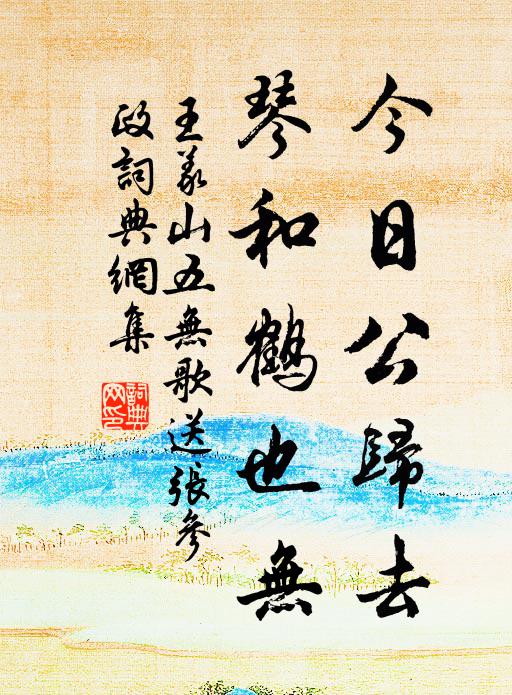 今日公歸去
琴和鶴也無
王義山五無歌送張參
政詞典網集
詞典
网印